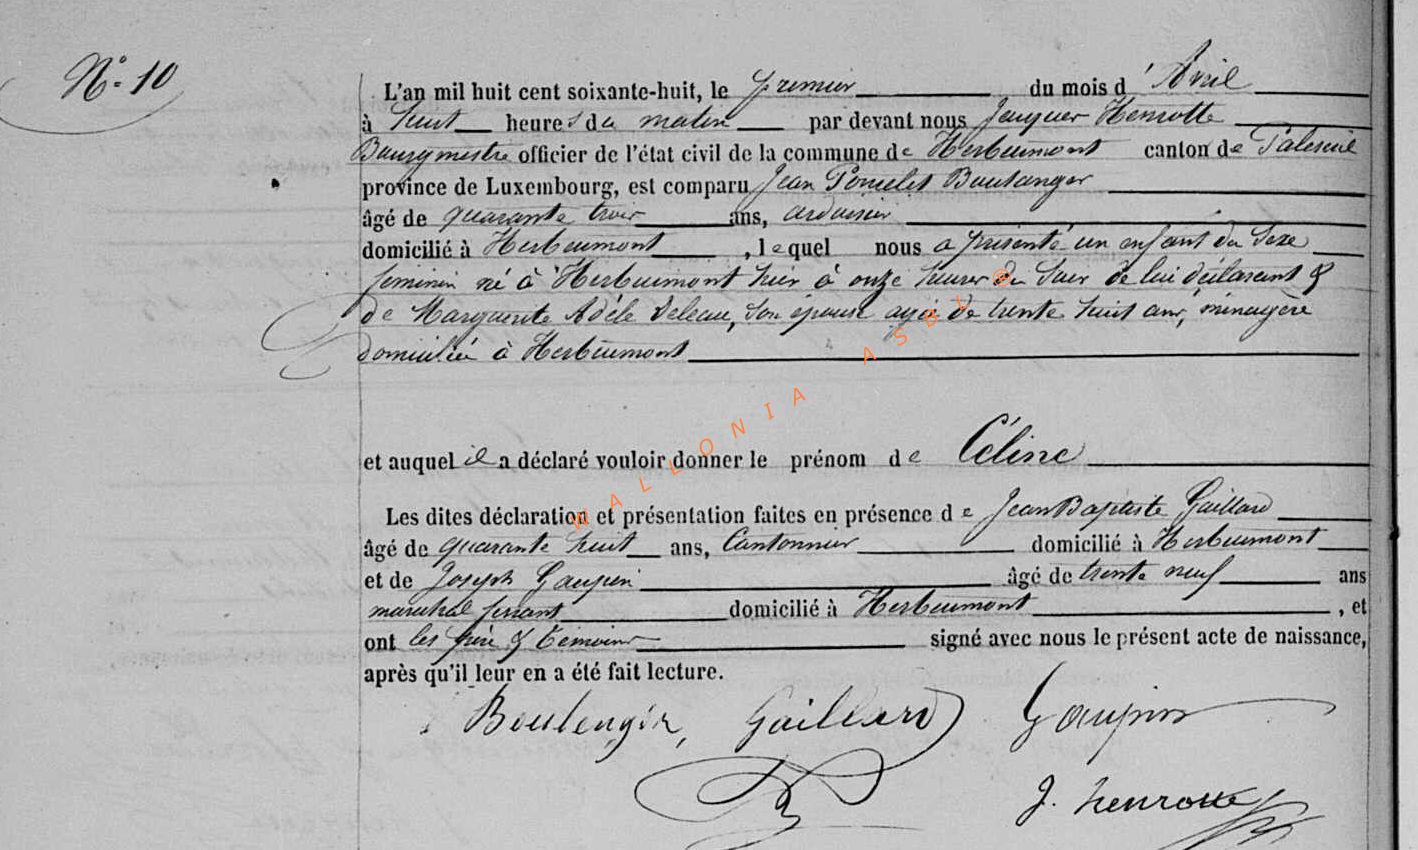 N° 10
L'an mil huit cent soixante-huit, le premier du mois d'Avril
à huit heures du matin par devant nous Jacques Henrotte
Bourgmestre officier de l'état civil de la commune de Herbeumont canton de Paliseul
province de Luxembourg, est comparu Jean Poncelet Boulanger
âgé de quarante trois ans, ardoisier
domicilié à Herbeumont, lequel nous a présenté un enfant du Sexe
feminin né à Herbeumont hier à onze heures du Soir de lui déclarant &
de Marguerite Adèle Deleau, son épouse agée de trente huit ans, ménagère
domiciliée à Herbeumont
et auquel il a déclaré vouloir donner le prénom de Céline
Les dites déclaration et présentation faites en présence de Jean Baptiste Gaillard
âgé de quarante huit ans, Cantonnier domicilié à Herbeumont
et de Joseph Goupin âgé de trente neuf ans
maréchal ferrant domicilié à Herbeumont, et
ont les père & témoins signé avec nous le présent acte de naissance,
après qu'il leur en a été fait lecture.
Boulenger, Gaillard Goupin
J. henrotte
WALLONIA ASBL ©